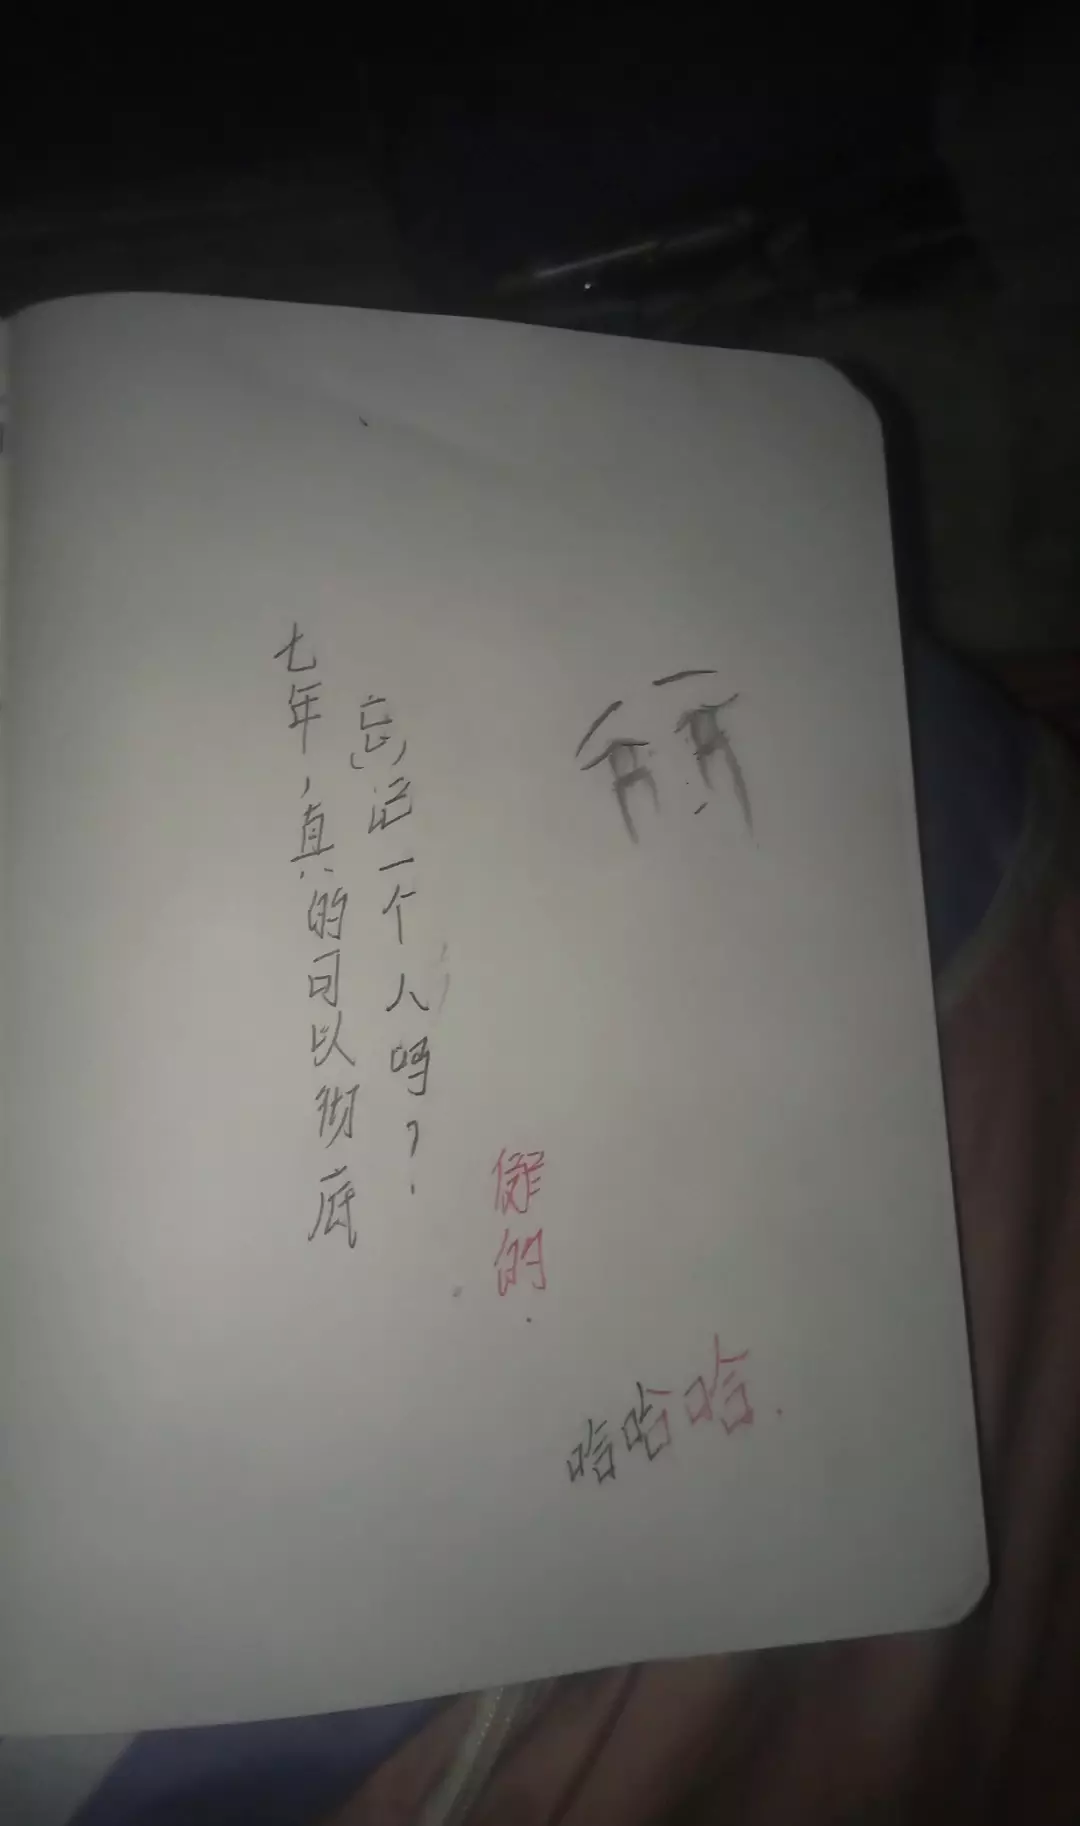 七年，真的可以彻底
忘记一个人吗？
假的.
哈哈哈.